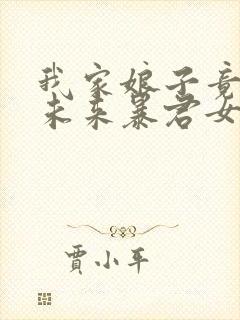 我家娘子竟
未来暴君女
賈小平